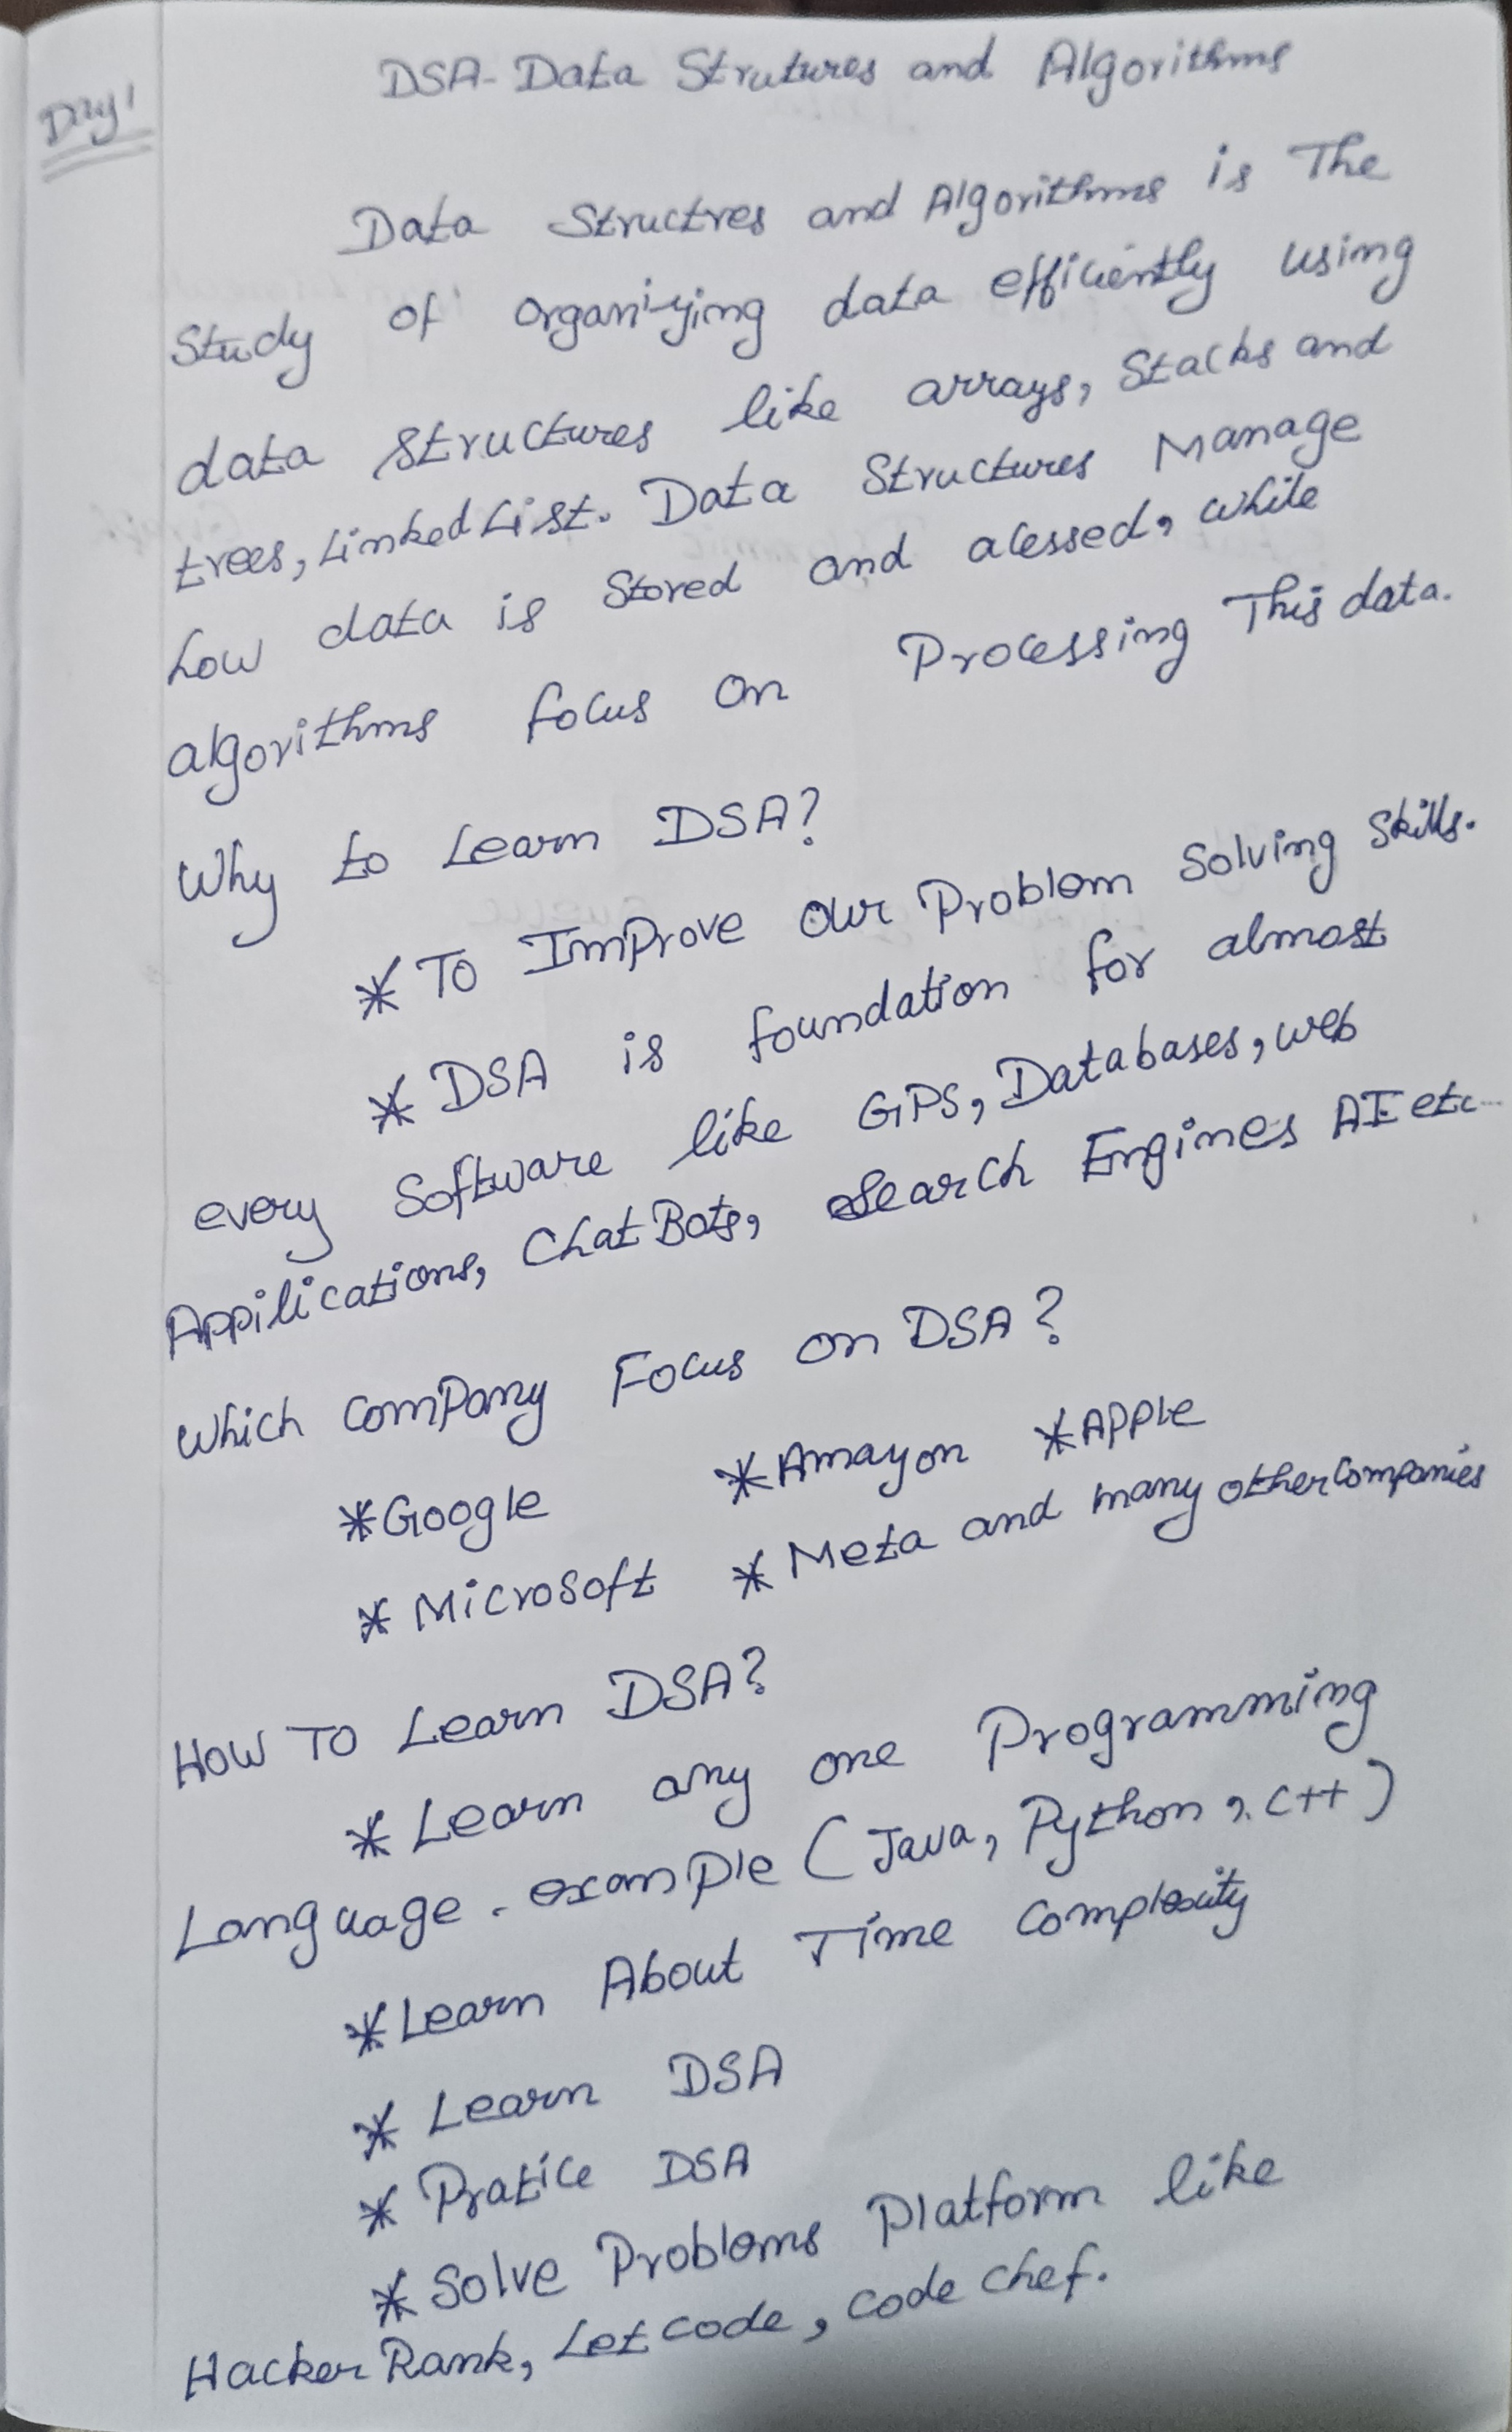 DSA-Data Strutures and Algorithms
Day 1
Data Structres and Algorithms is The
Study of organizing data efficiently using
data structures like arrays, Stacks and
trees, Linked List. Data Structures Manage
how data is Stored and acessed, while
algorithms focus on Processing This data.
Why to Learn DSA?
* To Improve our Problem Solving Skills.
* DSA is foundation for almost
every Software like GPS, Databases, web
Appilications, Chat Bots, Search Engines AI etc...
Which Company Focus on DSA?
*Google *Amazon *Apple
* Microsoft * Meta and many other Companies
How To Learn DSA?
* Learn any one Programming
Language. example (Java, Python, C++)
*Learn About Time Complexity
* Learn DSA
* Pratice DSA
* Solve Problems Platform like
Hacker Rank, Let code, code chef.